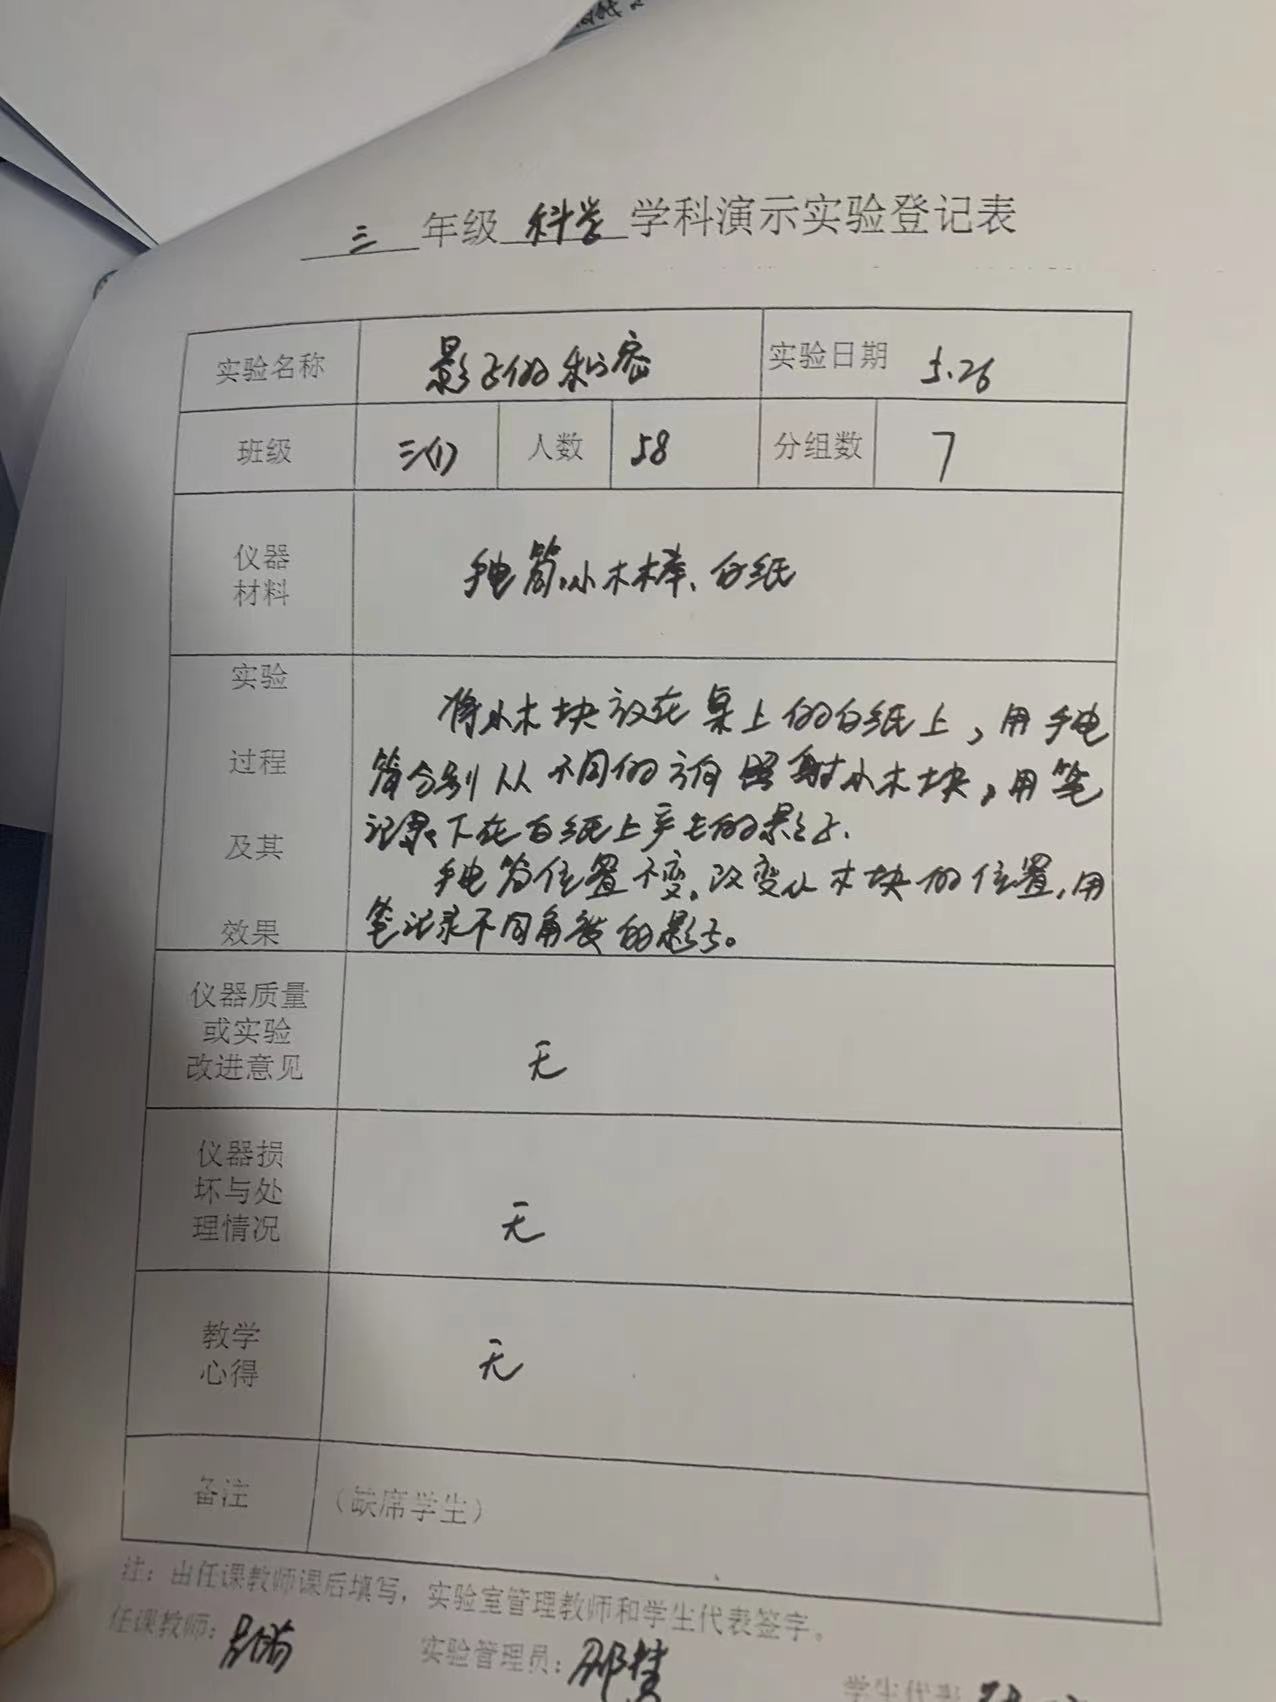 三 年级 科学 学科演示实验登记表
实验名称 影子的秘密 实验日期 5.26
班级 三(1) 人数 58 分组数 7
仪器
材料
手电筒、小木棒、白纸
实验
过程
及其
效果
将小木块放在桌上的白纸上，用手电
筒分别从不同的方向照射小木块，用笔
记录下在白纸上产生的影子.
手电筒位置不变，改变小木块的位置，用
笔记录不同角度的影子。
仪器质量
或实验
改进意见
无
仪器损
坏与处
理情况
无
教学
心得
无
备注 （缺席学生）
注：由任课教师课后填写，实验室管理教师和学生代表签字。
任课教师：
实验管理员：
学生代表